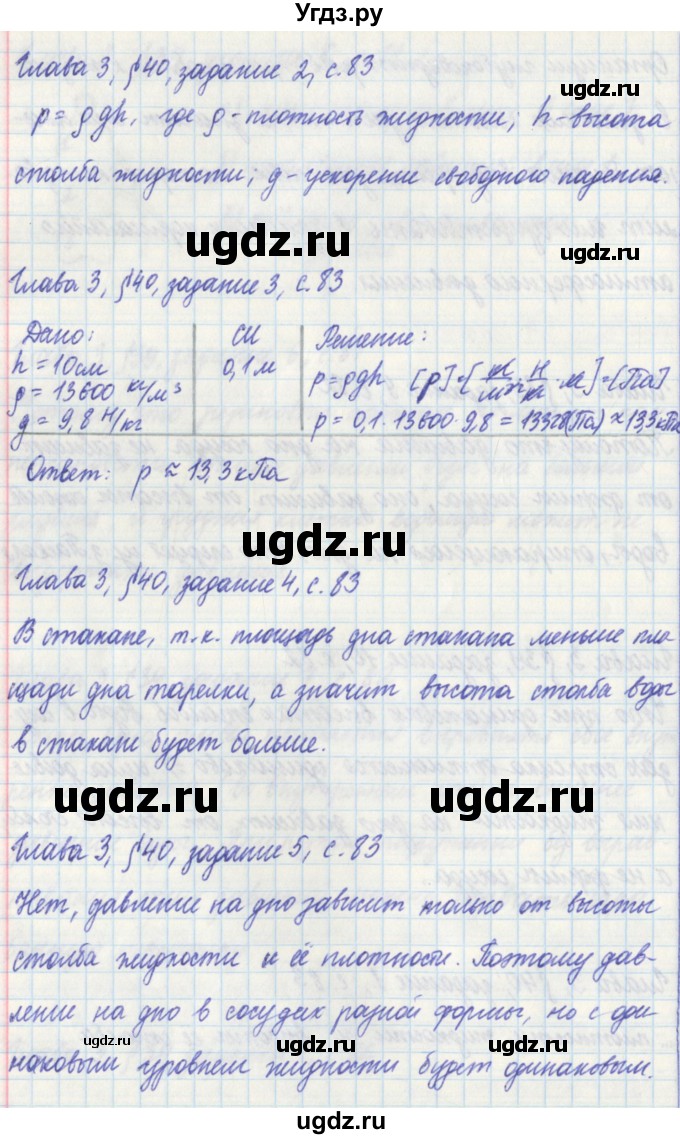 Угдз.ру
Глава 3, §40, задание 2, с.83
p = ρgh, где ρ - плотность жидкости; h - высота
столба жидкости; g - ускорение свободного падения.
ugdz.ru
ugdz.ru
Глава 3, §40, задание 3, с.83
Дано: СИ Решение:
h = 10 см 0,1 м p = ρgh [p] = [кг/м³ · Н/кг · м] = [Па]
ρ = 13600 кг/м³
g = 9,8 Н/кг p = 0,1 · 13600 · 9,8 = 13328(Па) ≈ 13,3 кПа
Ответ: p ≈ 13,3 кПа
ugdz.ru
ugdz.ru
Глава 3, §40, задание 4, с.83
В стакане, т.к. площадь дна стакана меньше пло-
щади дна тарелки, а значит высота столба воды
в стакане будет больше.
ugdz.ru
ugdz.ru
Глава 3, §40, задание 5, с.83
Нет, давление на дно зависит только от высоты
столба жидкости и её плотности. Поэтому дав-
ление на дно в сосудах разной формы, но с оди-
наковым уровнем жидкости будет одинаковым.
ugdz.ru
ugdz.ru
ugdz.ru
ugdz.ru